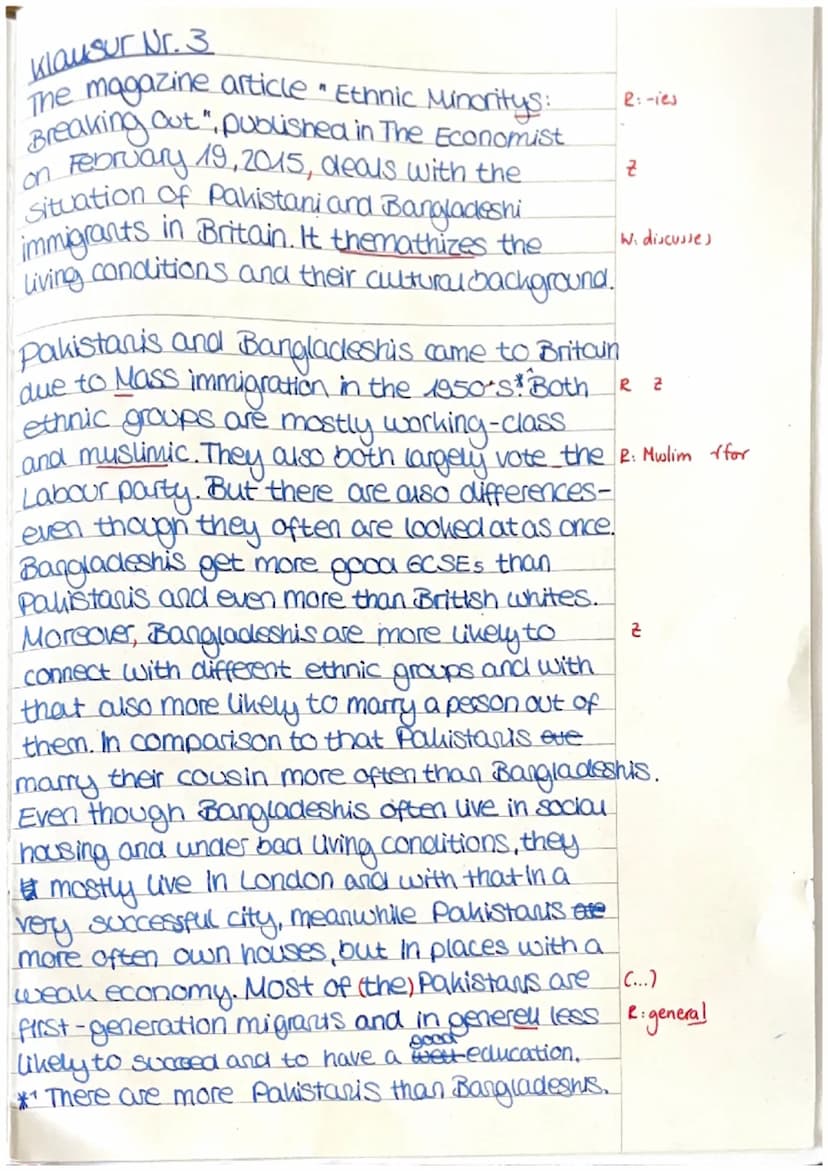 Klausur Nr. 3
The magazine article "Ethnic Minoritys: R: -ies
Breaking Out", published in The Economist
on February 19, 2015, deals with the Z
situation of Pakistani and Bangladeshi
immigrants in Britain. It themathizes the W: discusses
living conditions and their cultural background.
Pakistanis and Bangladeshis came to Britain
due to Mass immigration in the 1950's.*¹ Both R Z
ethnic groups are mostly working-class
and muslimic. They also both largely vote the R: Muslim √for
Labour party. But there are also differences-
even though they often are looked at as once.
Bangladeshis get more good GCSEs than
Pakistanis and even more than British whites.
Moreover, Bangladeshis are more likely to Z
connect with different ethnic groups and with
that also more likely to marry a person out of
them. In comparison to that Pakistanis are
marry their cousin more often than Bangladeshis.
Even though Bangladeshis often live in social
housing and under bad living conditions, they
mostly live in London and with that in a
very successful city, meanwhile Pakistanis are
more often own houses, but in places with a
weak economy. Most of (the) Pakistanis are (...)
first-generation migrants and in generell less R: general
likely to succeed and to have a well good education.
*¹ There are more Pakistanis than Bangladeshis.